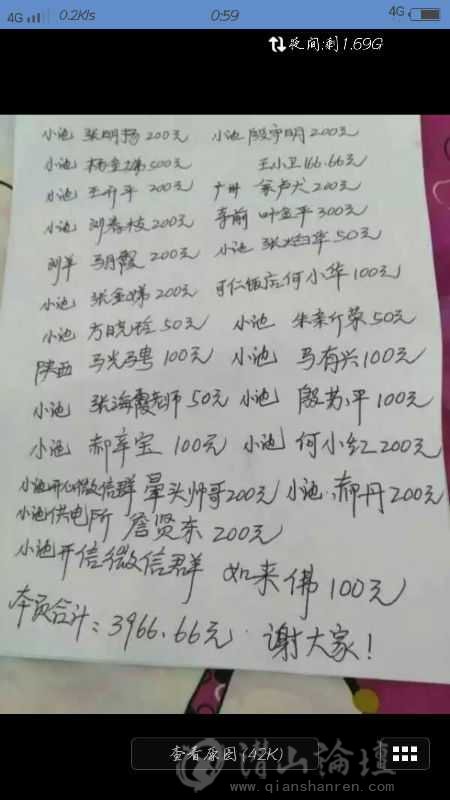 4G 0.2K/s 0:59 4G
夜间:剩1.69G
小池 张明扬 200元 小池 殷宇明 200元
小池 杨金娣 500元 王小卫 166.66元
小池 王开平 200元 广州 200元
小池 刘春枝 200元 李前 叶金平 300元
刘羊 马月霞 200元 小池 张灿华 50元
小池 张金娣 200元 可仁饭店 何小华 100元
小池 方晓玲 50元 小池 朱亲荣 50元
陕西 马光骋 100元 小池 马有兴 100元
小池 张海霞老师 50元 小池 殷苏平 100元
小池 郝辛宝 100元 小池 何小红 200元
小池开心微信群 晕头帅哥 200元 小池 郝丹 200元
小池供电所 詹贤东 200元
小池开信微信群 如来佛 100元
本页合计:3966.66元 谢大家!
查看原图(42K)
潜山论坛
www.qianshanren.com